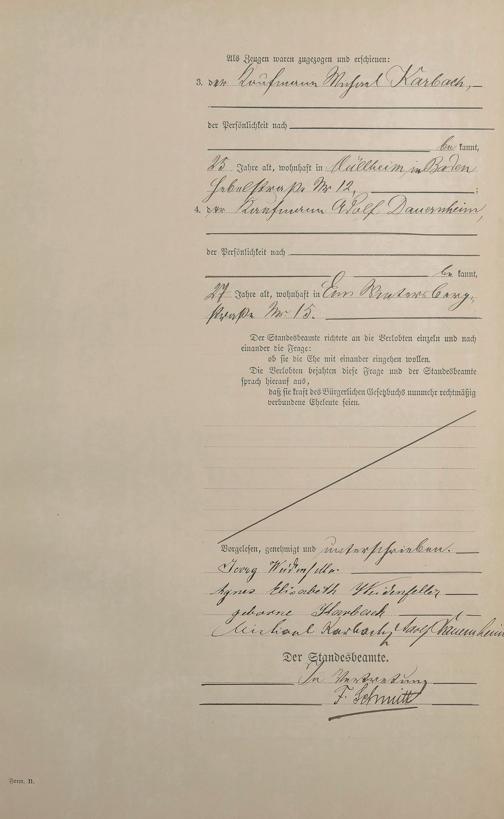 Als Zeugen waren zugezogen und erschienen:
3. der Kaufmann Michael Karbach,
der Persönlichkeit nach
be kannt,
25 Jahre alt, wohnhaft in Müllheim in Baden
Hebelstraße Nr 12, ;
4. der Kaufmann Adolf Dauernheim,
der Persönlichkeit nach
be kannt,
27 Jahre alt, wohnhaft in Ems Wintersberg-
straße Nr 15.
Der Standesbeamte richtete an die Verlobten einzeln und nach
einander die Frage:
ob sie die Ehe mit einander eingehen wollen.
Die Verlobten bejahten diese Frage und der Standesbeamte
sprach hierauf aus,
daß sie kraft des Bürgerlichen Gesetzbuchs nunmehr rechtmäßig
verbundene Eheleute seien.
Vorgelesen, genehmigt und unterschrieben.
Georg Weidenfeller
Agnes Elisabeth Weidenfeller
geborne Karbach
Michael Karbach, Adolf Dauernheim
Der Standesbeamte.
In Vertretung
F. Schmitt
Form. B.